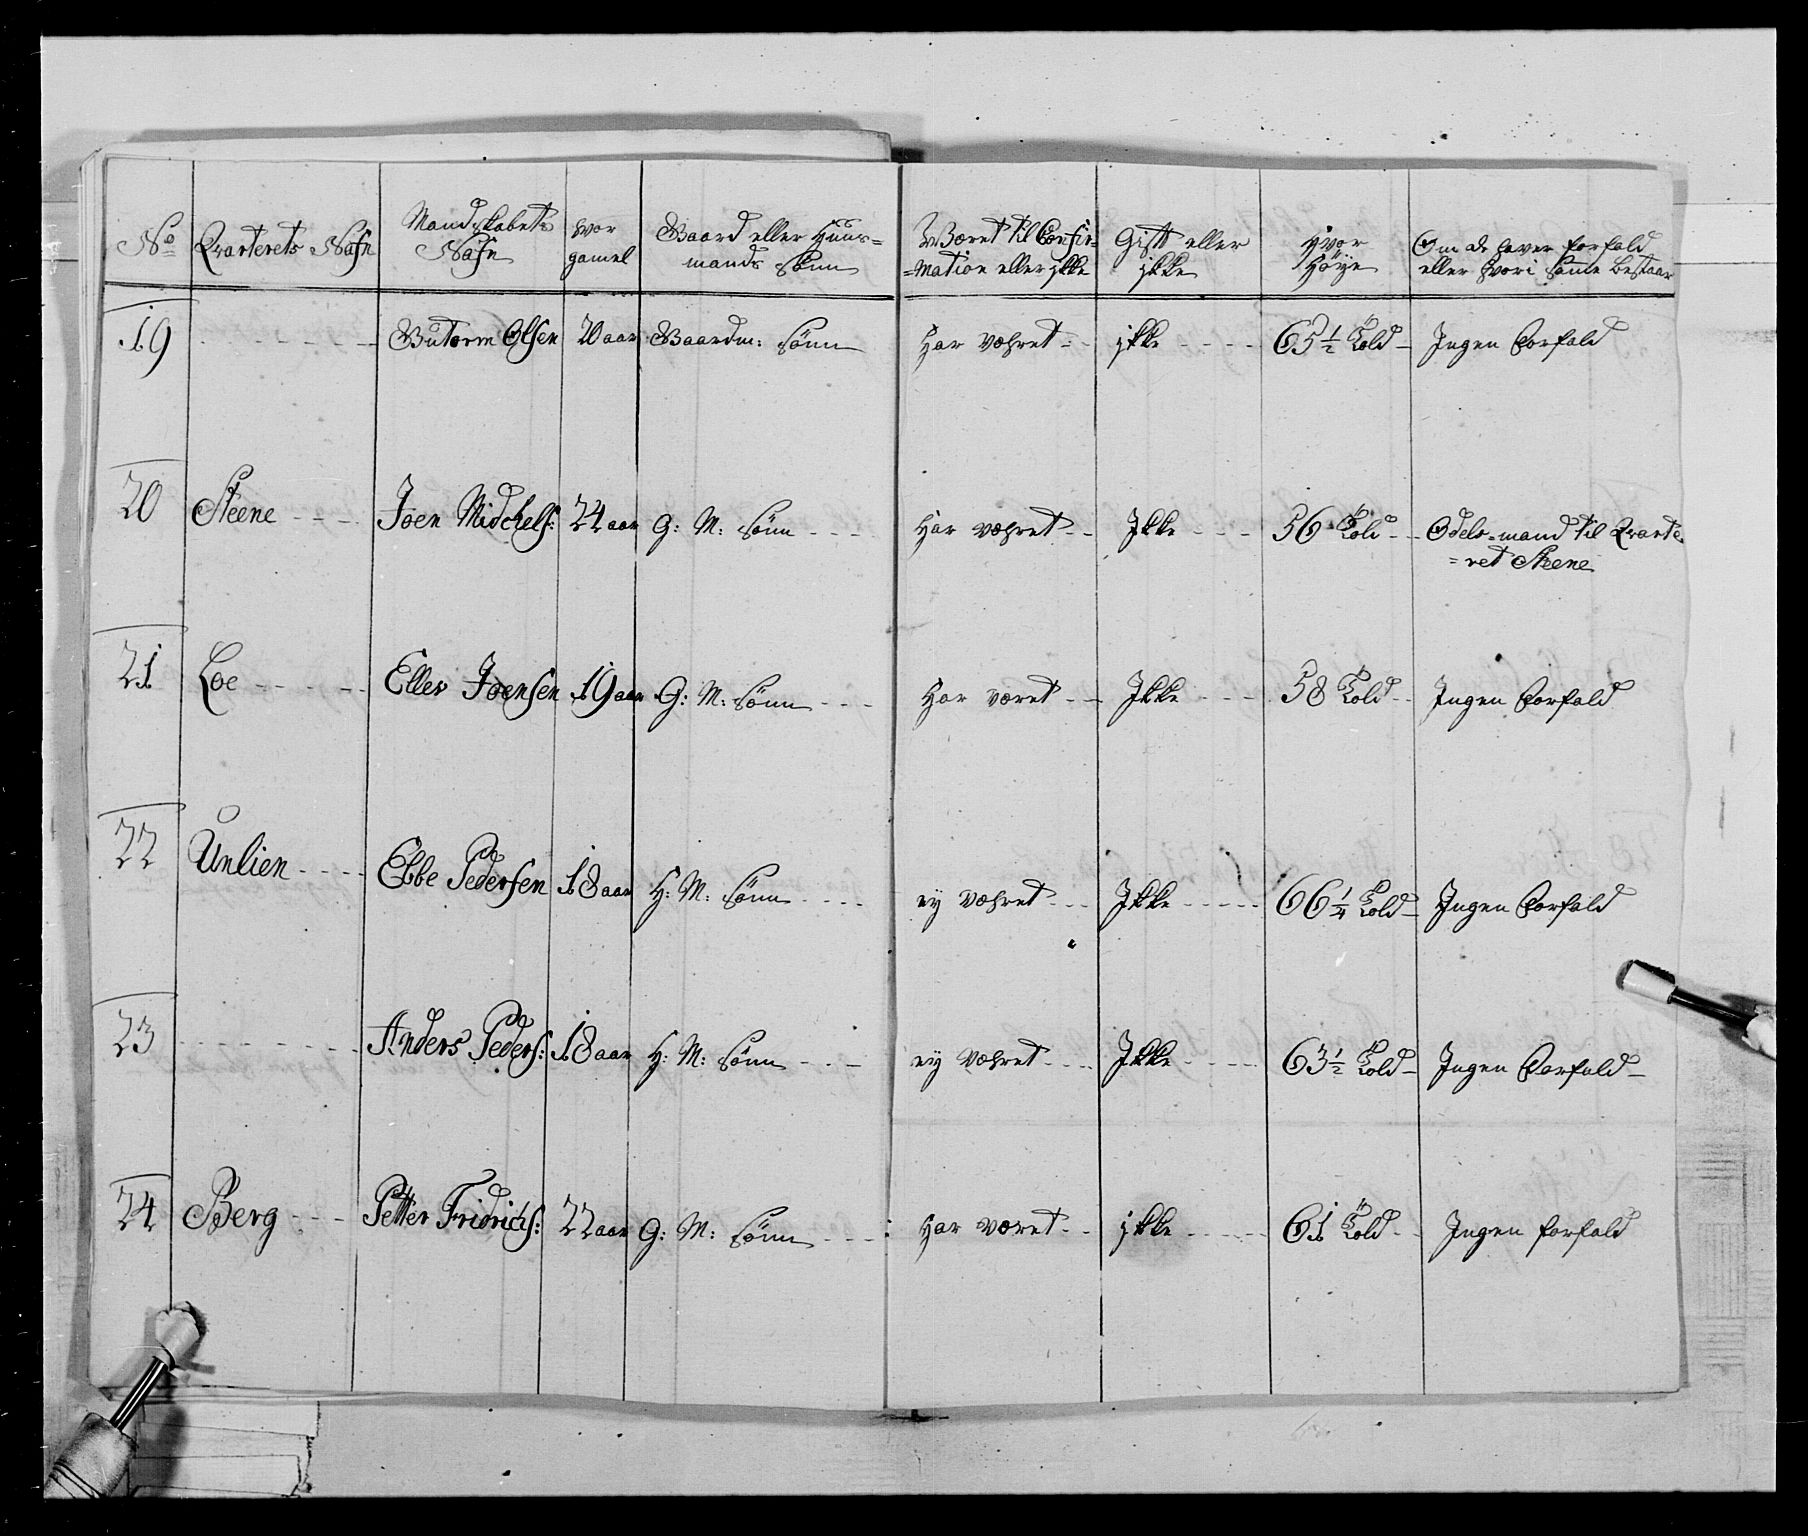 No Qvarterets Nafn Mandskabets Nafn hvor gamel Gaard eller Huus= mands Sönn Været til Confir= =mation eller ikke Gift eller ikke Hvor Höye Om de haver forfald eller hvori same bestaar
19 - - - Guttorm Olsen 20 aar Gaardm: Sönn Har væhret - - ikke - - - - 65 1/2 Told - Ingen Forfald
20 Steene - - - Joen Midchels: 24 aar G: M: Sönn - - - Har væhret - - Ikke - - - 56 Told - - Odels-mand til Qvarte
=ret Steene
21 Loe - - - - - Ellev Joensen 19 aar G: M: Sönn - - - Har været - - Ikke - - - 58 Told - - Ingen Forfald
22 Unlien - - - - Ebbe Pedersen 18 aar H: M: Sönn - - - - ey væhret - - - Ikke - - - - - 66 1/4 Told - Ingen Forfald
23 - - - Anders Peders: 18 aar H: M: Sönn - - - ey væhret - - - - Ikke - - - - - 63 1/2 Told - Ingen Forfald -
24 Berg - - - Petter Fridrichs: 22 aar G: M: Sönn - - - : Har været - - ikke - - - - - 61 Told - - Ingen forfald